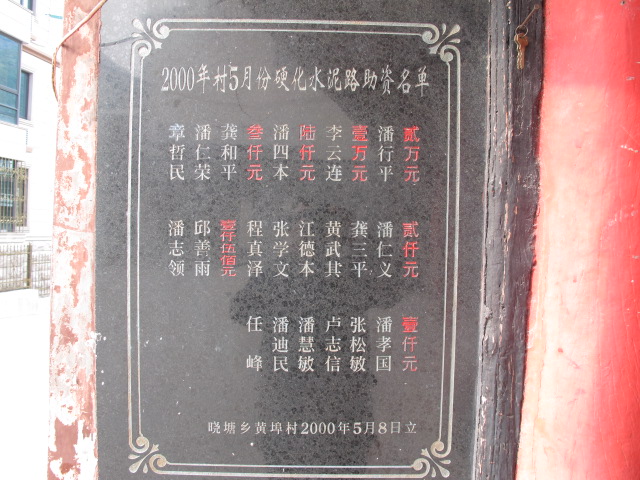 2000年村5月份硬化水泥路助资名单
贰万元
潘行平
壹万元
李云连
陆仟元
潘四本
叁仟元
龚和平
潘仁荣
章哲民
贰仟元
潘仁义
龚三平
黄武其
江德本
张学文
程真泽
壹仟伍佰元
邱善雨
潘志领
壹仟元
潘孝国
张松敏
卢志信
潘慧敏
潘迪民
任峰
晓塘乡黄埠村2000年5月8日立